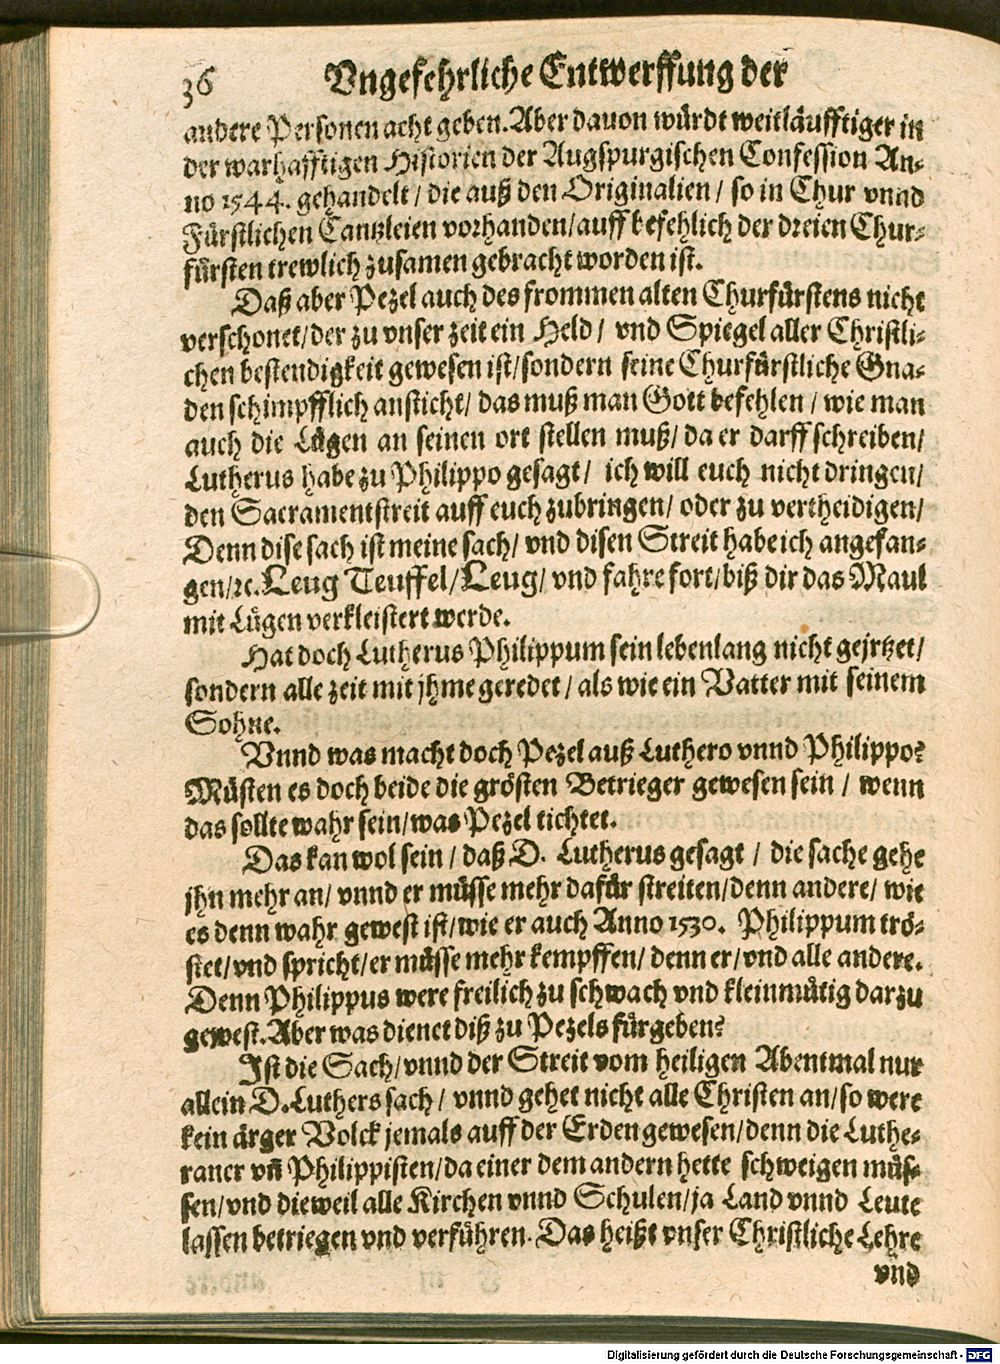 36 Vngefehrliche Entwerffung der
andere Personen acht geben. Aber dauon würdt weitläufftiger in
der warhafftigen Historien der Augspurgischen Confession An-
no 1544. gehandelt / die auß den Originalien / so in Chur vnnd
Fürstlichen Cantzleien vorhanden/auff befehlich der dreien Chur-
fürsten trewlich zusamen gebracht worden ist.
Daß aber Pezel auch des frommen alten Churfürstens nicht
verschonet/der zu vnser zeit ein Held / vnd Spiegel aller Christli-
chen bestendigkeit gewesen ist/sondern seine Churfürstliche Gna-
den schimpfflich ansticht/ das muß man Gott befehlen / wie man
auch die Lügen an seinen ort stellen muß/ da er darff schreiben/
Lutherus habe zu Philippo gesagt/ ich will euch nicht dringen/
den Sacramentstreit auff euch zubringen/ oder zu vertheidigen/
Denn dise sach ist meine sach/ vnd disen Streit habe ich angefan-
gen/ꝛc. Leug Teuffel/Leug/ vnd fahre fort/biß dir das Maul
mit Lügen verkleistert werde.
Hat doch Lutherus Philippum sein lebenlang nicht gejrtzet/
sondern alle zeit mit jhme geredet / als wie ein Vatter mit seinem
Sohne.
Vnnd was macht doch Pezel auß Luthero vnnd Philippo?
Müsten es doch beide die grösten Betrieger gewesen sein / wenn
das sollte wahr sein/was Pezel tichtet.
Das kan wol sein / daß D. Lutherus gesagt / die sache gehe
jhn mehr an/ vnnd er müsse mehr dafür streiten/denn andere/ wie
es denn wahr gewest ist/wie er auch Anno 1530. Philippum trö-
stet/vnd spricht/er müsse mehr kempffen/ denn er/vnd alle andere.
Denn Philippus were freilich zu schwach vnd kleinmütig darzu
gewest. Aber was dienet diß zu Pezels fürgeben?
Ist die Sach/vnnd der Streit vom heiligen Abentmal nur
allein D. Luthers sach / vnnd gehet nicht alle Christen an/so were
kein ärger Volck jemals auff der Erden gewesen/denn die Luthe-
raner vñ Philippisten/da einer dem andern hette schweigen müs-
sen/vnd dieweil alle Kirchen vnnd Schulen/ja Land vnnd Leute
lassen betriegen vnd verführen. Das heißt vnser Christliche Lehre
vnd
Digitalisierung gefördert durch die Deutsche Forschungsgemeinschaft - DFG